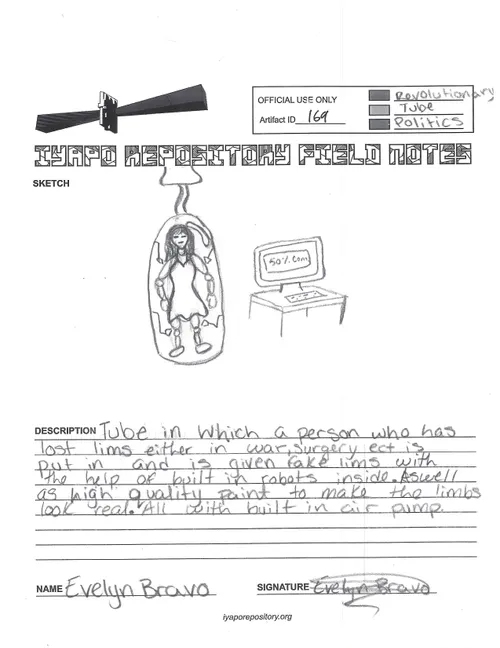 OFFICIAL USE ONLY
Artifact ID 169
Revolutionary
Tube
Politics
IYAPO REPOSITORY FIELD NOTES
SKETCH
50%.Com
DESCRIPTION Tube in which a person who has
lost lims either in war, surgery ect is
put in and is given fake lims with
the help of built in robots inside. Aswell
as high quality paint to make the limbs
look real. All with built in air pump.
NAME Evelyn Bravo
SIGNATURE Evelyn Bravo
iyaporepository.org